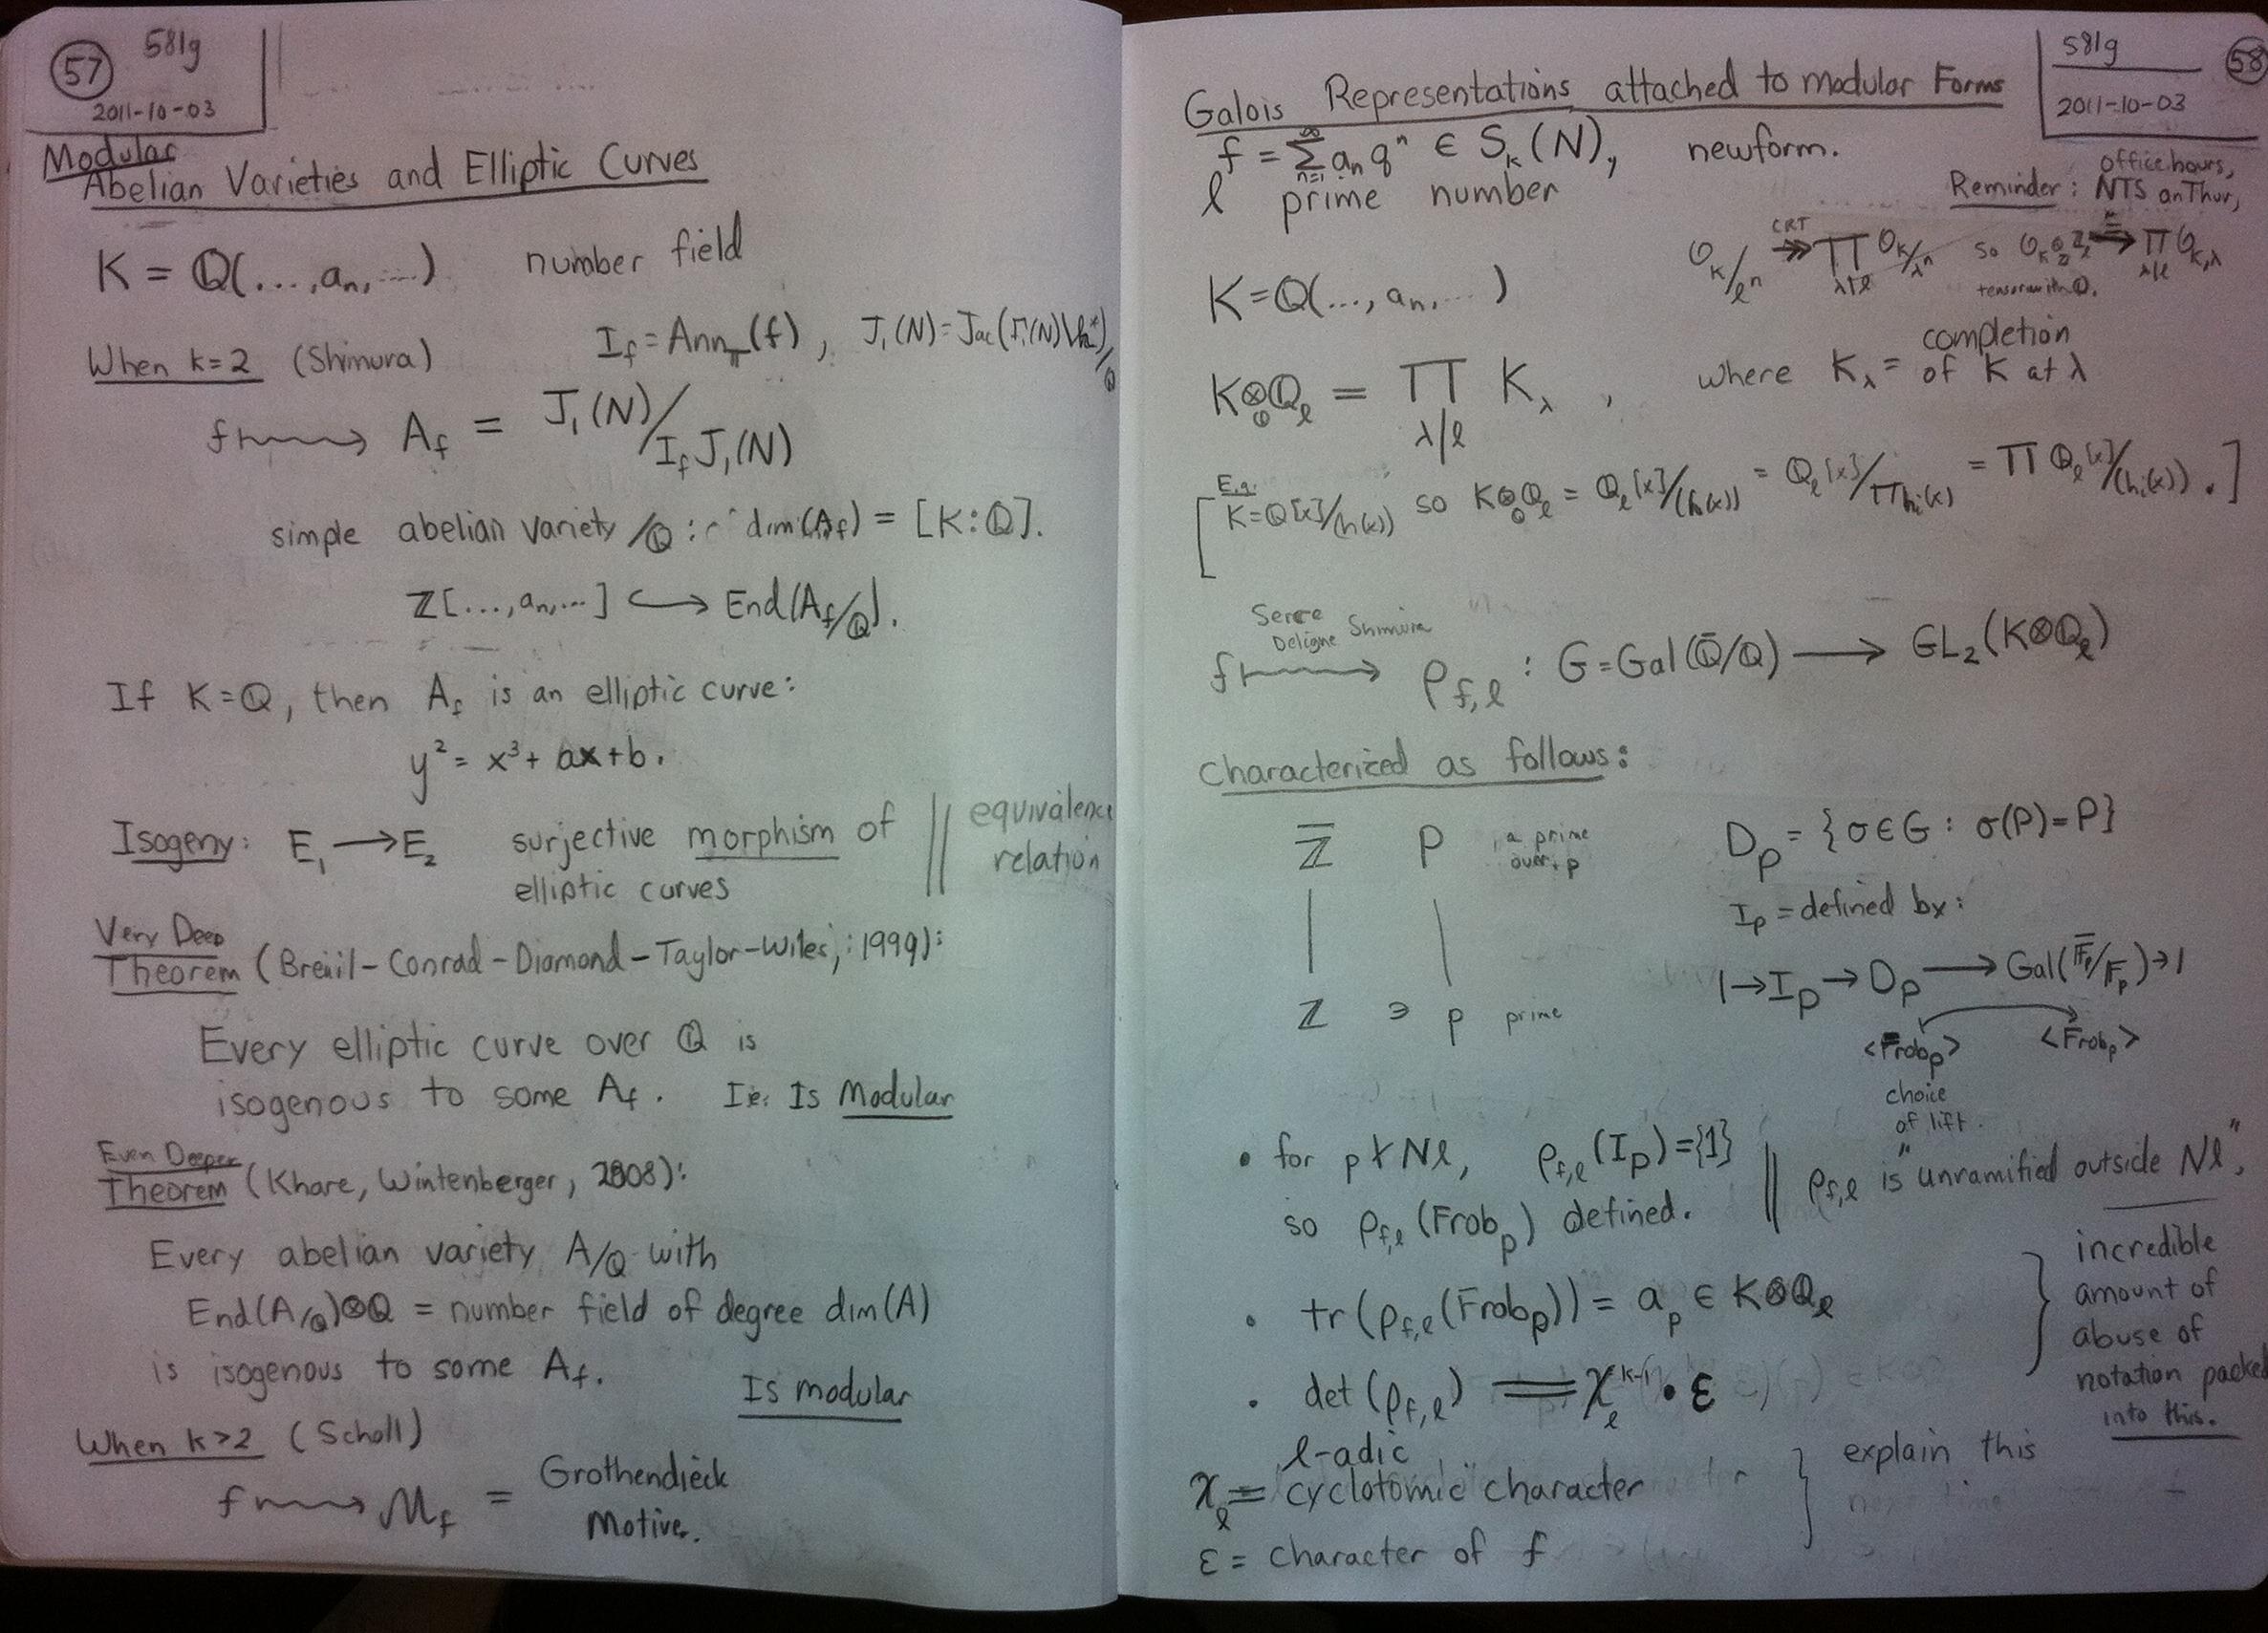 57 581g
2011-10-03
Modular
Abelian Varieties and Elliptic Curves
K = ℚ(...,aₙ,...) number field
When k=2 (Shimura) I_f = Ann_𝕋(f), J₁(N) = Jac(Γ₁(N)\h*)/ℚ
f ⟿ A_f = J₁(N)/I_f J₁(N)
simple abelian variety /ℚ : dim(A_f) = [K:ℚ].
ℤ[...,aₙ,...] ↪ End(A_f/ℚ).
If K=ℚ, then A_f is an elliptic curve:
y² = x³ + ax + b.
Isogeny: E₁ → E₂ surjective morphism of || equivalence
elliptic curves relation
Very Deep
Theorem (Breuil-Conrad-Diamond-Taylor-Wiles, :1999):
Every elliptic curve over ℚ is
isogenous to some A_f. I.e. Is Modular
Even Deeper
Theorem (Khare, Wintenberger, 2008):
Every abelian variety A/ℚ with
End(A/ℚ)⊗ℚ = number field of degree dim(A)
is isogenous to some A_f.
Is modular
When k>2 (Scholl)
f ⟿ M_f = Grothendieck
Motive.
581g 58
2011-10-03
Galois Representations attached to Modular Forms
f = ∑_{n=1}^∞ aₙqⁿ ∈ S_k(N), newform.
ℓ prime number
office hours,
Reminder: NTS on Thur,
O_K/ℓⁿ ↠ (CRT) ∏_{λ|ℓ} O_K/λⁿ so O_K ⊗_ℤ ℤ_ℓ ≅→ ∏_{λ|ℓ} O_{K,λ}
tensor with ℚ.
K = ℚ(...,aₙ,...)
K⊗_ℚ ℚ_ℓ = ∏_{λ|ℓ} K_λ , where K_λ = completion of K at λ
[E.g. K=ℚ[x]/(h(x)) so K⊗_ℚ ℚ_ℓ = ℚ_ℓ[x]/(h(x)) = ℚ_ℓ[x]/∏h_i(x) = ∏ ℚ_ℓ[x]/(h_i(x)).]
Serre
Deligne Shimura
f ⟿ ρ_{f,ℓ} : G = Gal(ℚ̄/ℚ) → GL₂(K⊗ℚ_ℓ)
Characterized as follows:
ℤ̄ P a prime over p D_p = {σ∈G : σ(P)=P}
I_p = defined by:
1→I_p→D_p→Gal(𝔽̄_p/𝔽_p)→1
ℤ ∋ p prime
<Frob_p> <Frob_p>
choice
of lift.
• for p∤Nℓ, ρ_{f,ℓ}(I_p)={1} || ρ_{f,ℓ} is "unramified outside Nℓ",
so ρ_{f,ℓ}(Frob_p) defined.
• tr(ρ_{f,ℓ}(Frob_p)) = a_p ∈ K⊗ℚ_ℓ
• det(ρ_{f,ℓ}) = χ_ℓ^{k-1} • ε
} incredible
amount of
abuse of
notation packed
into this.
χ_ℓ = ℓ-adic cyclotomic character
ε = character of f
} explain this